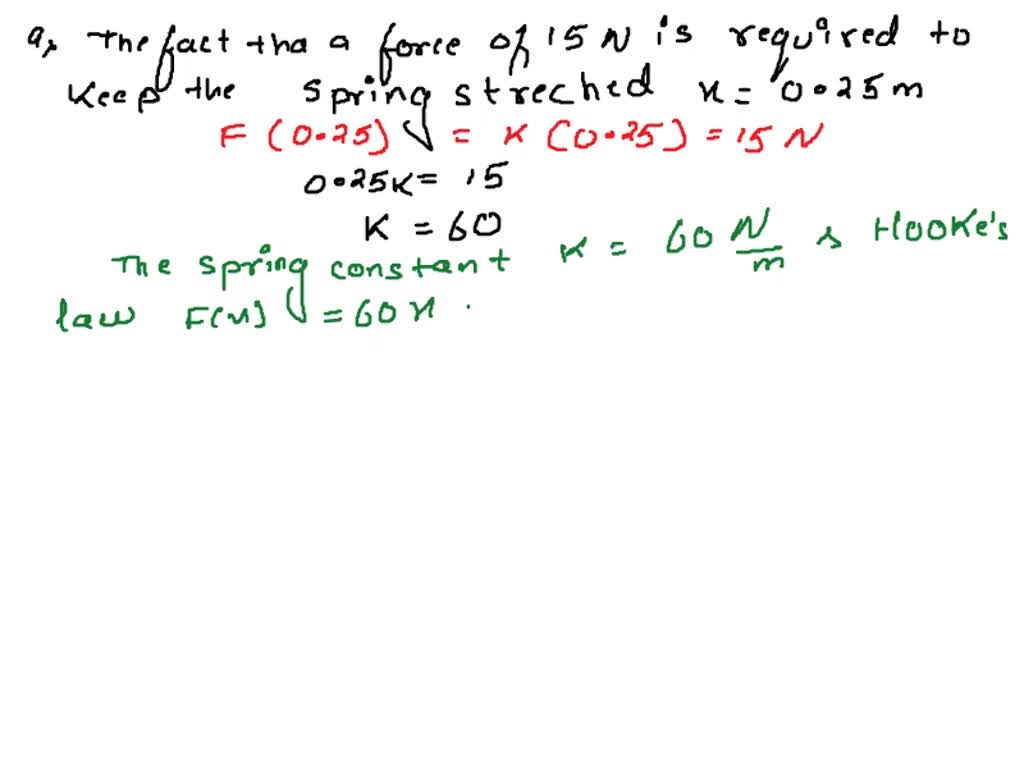 a, The fact tha a force of 15 N is required to
Keep the spring streched x = 0.25 m
F (0.25) = K (0.25) = 15 N
0.25K = 15
K = 60
The spring constant K = 60 N/m & HOOKe's
law F(x) = 60 x .